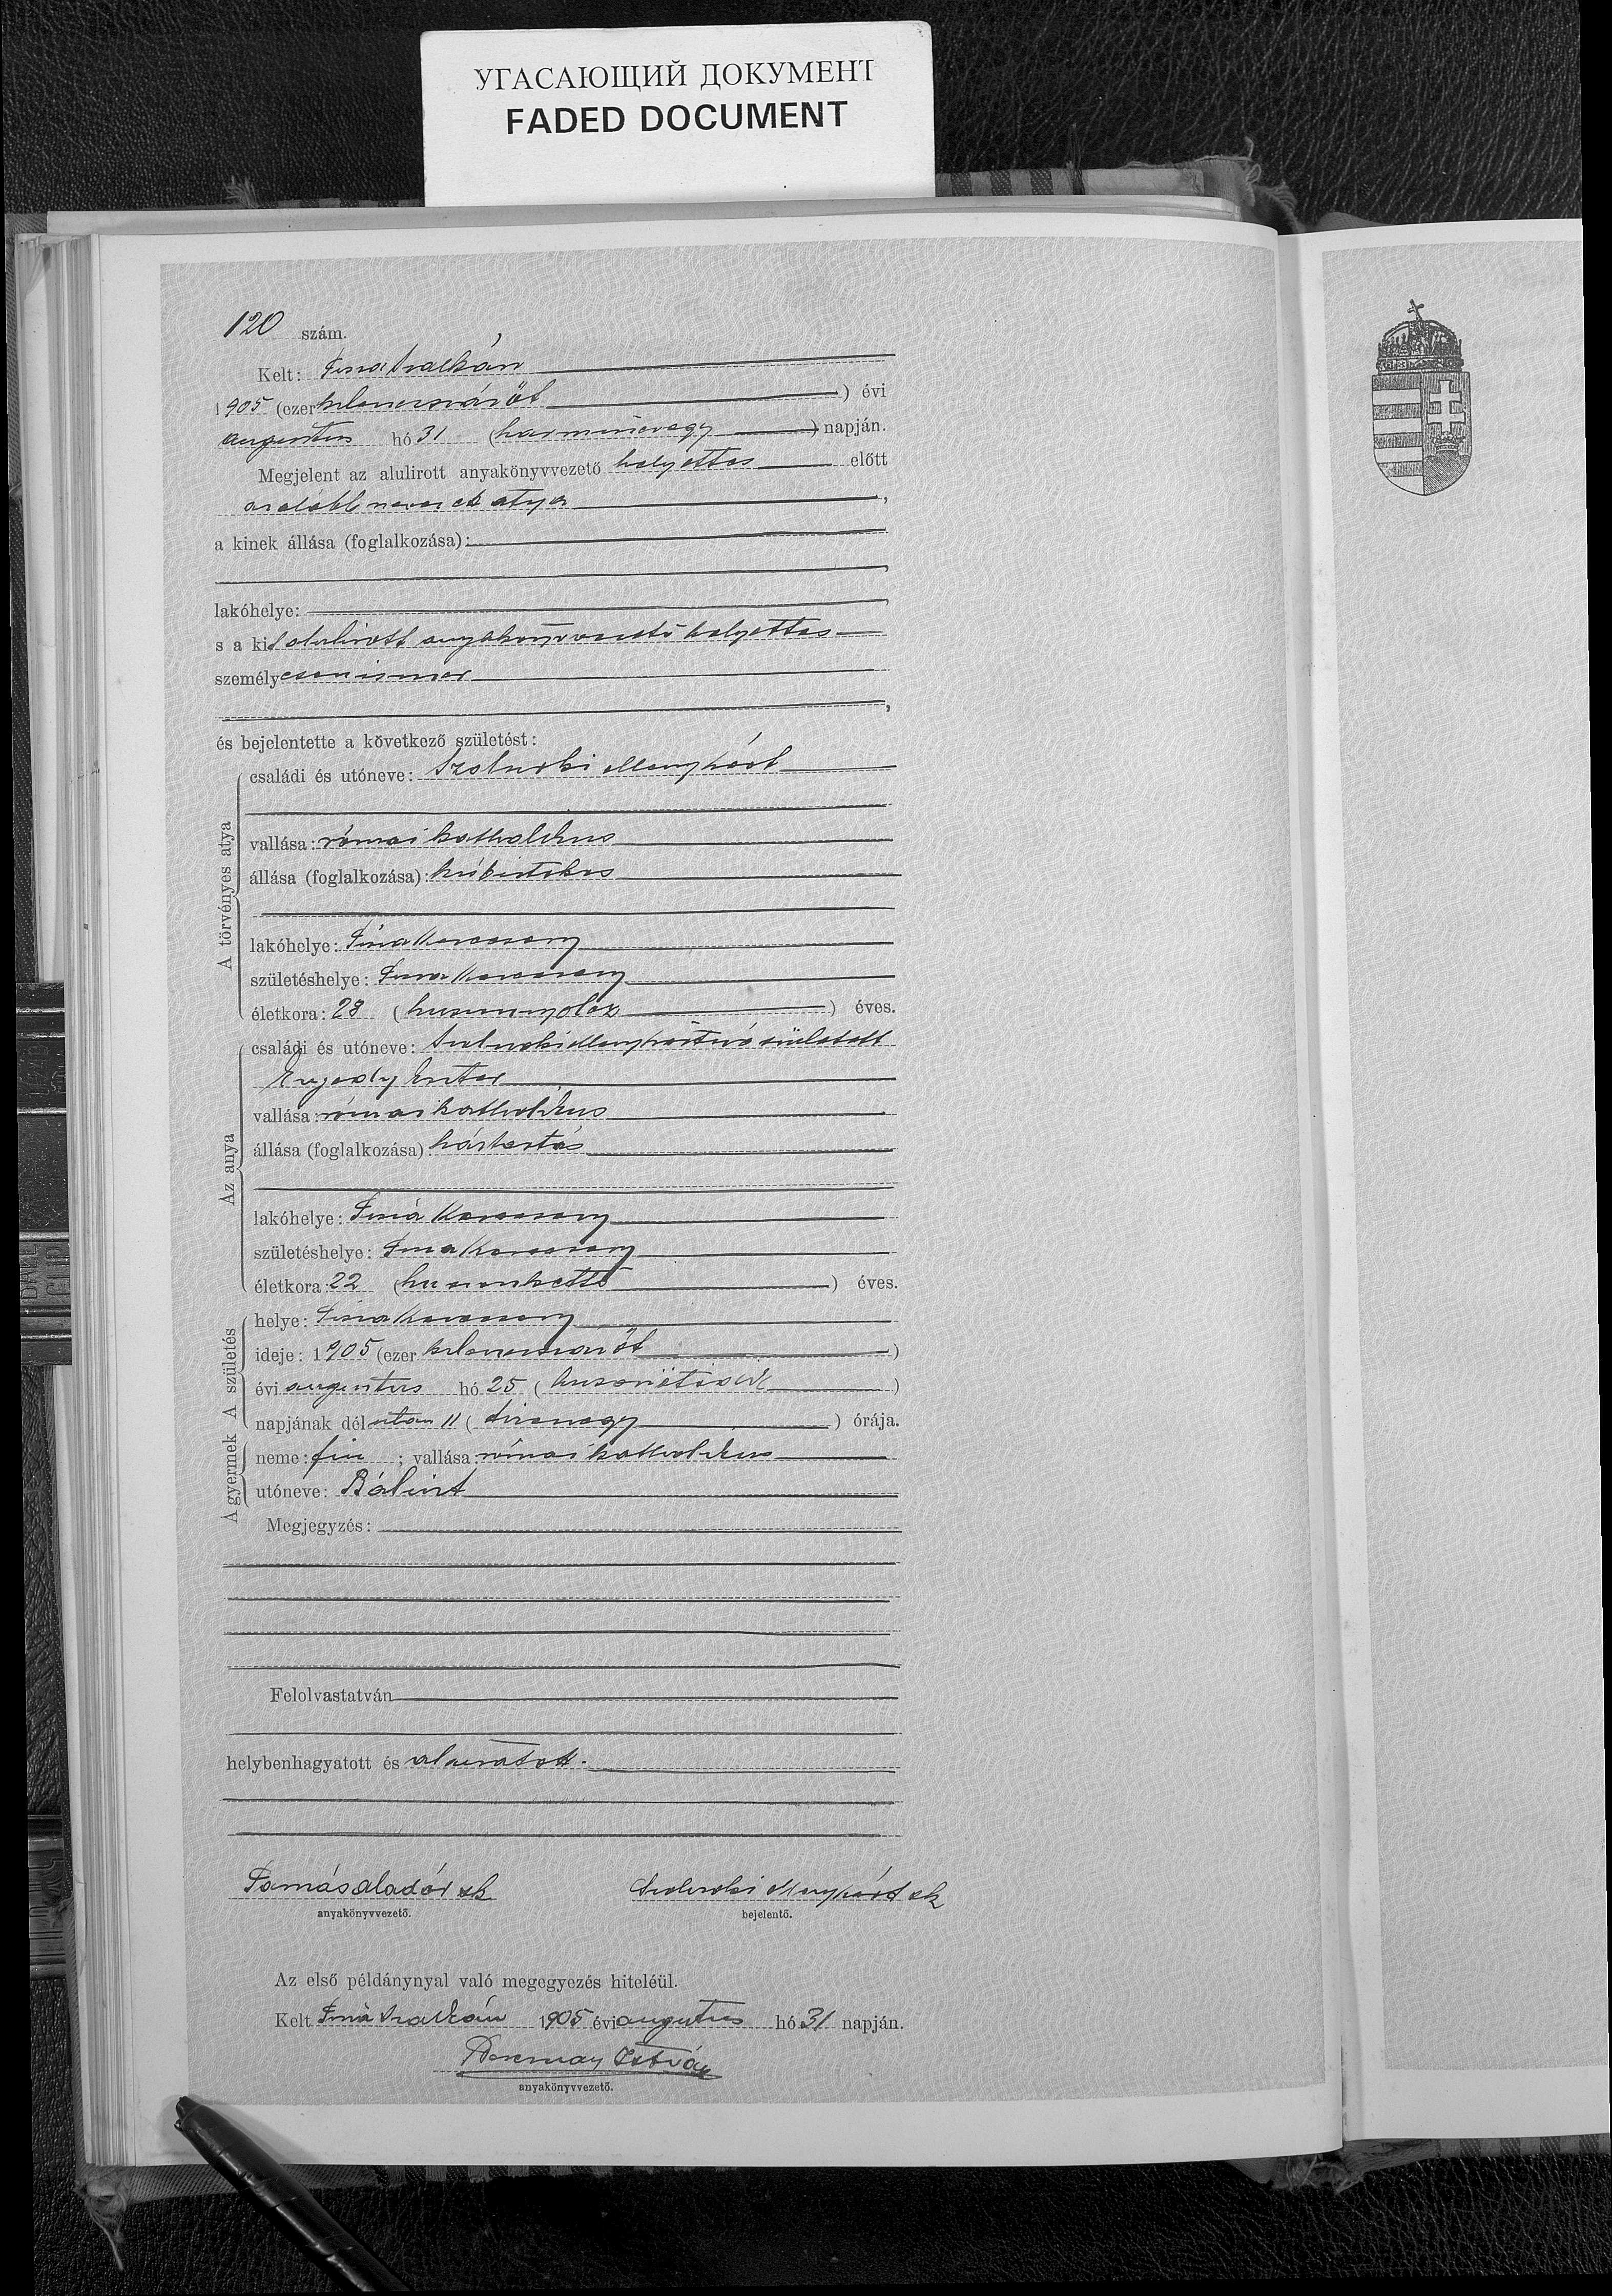 УГАСАЮЩИЙ ДОКУМЕНТ
FADED DOCUMENT
120 szám.
Kelt: Tiszaszalkán
1905 (ezer kilencszázöt ) évi
augusztus hó 31 (harminczegy ) napján.
Megjelent az alulirott anyakönyvvezető helyettes előtt
az alább nevezett atya ,
a kinek állása (foglalkozása):
lakóhelye:
s a kit alulirott anyakönyvvezető helyettes
személyesen ismer
,
és bejelentette a következő születést:
A törvényes atya
családi és utóneve: Szolnoki Menyhért
vallása: római katholikus
állása (foglalkozása): kisbirtokos
lakóhelye: Tisza Kerecseny
születéshelye: Tisza Kerecseny
életkora: 28 (husznnyolcz ) éves.
Az anya
családi és utóneve: Szolnoki Menyhértné született
Eszter
vallása: római katholikus
állása (foglalkozása) háztartás
lakóhelye: Tisza Kerecseny
születéshelye: Tisza Kerecseny
életkora: 22 (huszonkettő ) éves.
A születés
helye: Tisza Kerecseny
ideje: 1905 (ezer kilencszázöt )
évi augusztus hó 25 (huszonötödik )
napjának délután 11 (tizenegy ) órája.
A gyermek
neme: fiu ; vallása: római katholikus
utóneve: Bálint
Megjegyzés:
Felolvastatván
helybenhagyatott és aláiratott.
Tamás Aladár sk Szolnoki Menyhért sk
anyakönyvvezető. bejelentő.
Az első példánynyal való megegyezés hiteléül.
Kelt Tisza Szalkán 1905 évi augusztus hó 31 napján.
István
anyakönyvvezető.